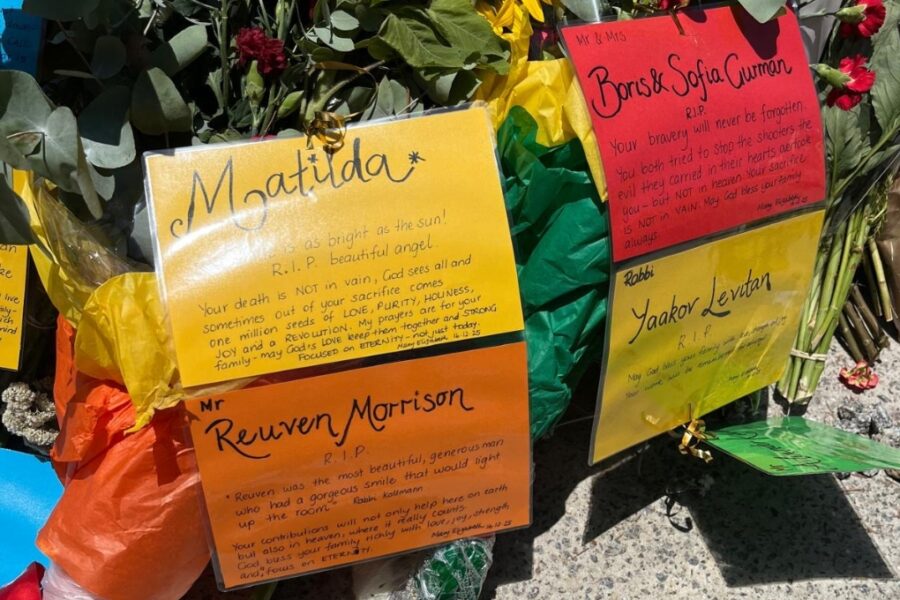 Matilda*
is as bright as the sun!
R.I.P. beautiful angel.
Your death is NOT in vain, God sees all and
sometimes out of your sacrifice comes
one million seeds of LOVE, PURITY, HOLINESS,
JOY and a REVOLUTION. My prayers are for your
family - may God's LOVE keep them together and STRONG
FOCUSED on ETERNITY - not just today.
Mary Elizabeth 16.12.25
Mr
Reuven Morrison
R.I.P.
"Reuven was the most beautiful, generous man
who had a gorgeous smile that would light
up the room" Rabbi Kaltmann
Your contributions will not only help here on earth
but also in heaven, where it really counts.
God bless your family richly with love, joy, strength
and, focus on ETERNITY.
Mary Elizabeth 16.12.25
Mr & Mrs
Boris & Sofia Gurman
R.I.P.
Your bravery will never be forgotten.
You both tried to stop the shooters, the
evil they carried in their hearts
you - but NOT in heaven. Your sacrifice
is NOT IN VAIN. May God bless your family
always.
Mary Elizabeth
Rabbi
Yaakov Levitan
R.I.P.
May God bless your family with
Your work will be